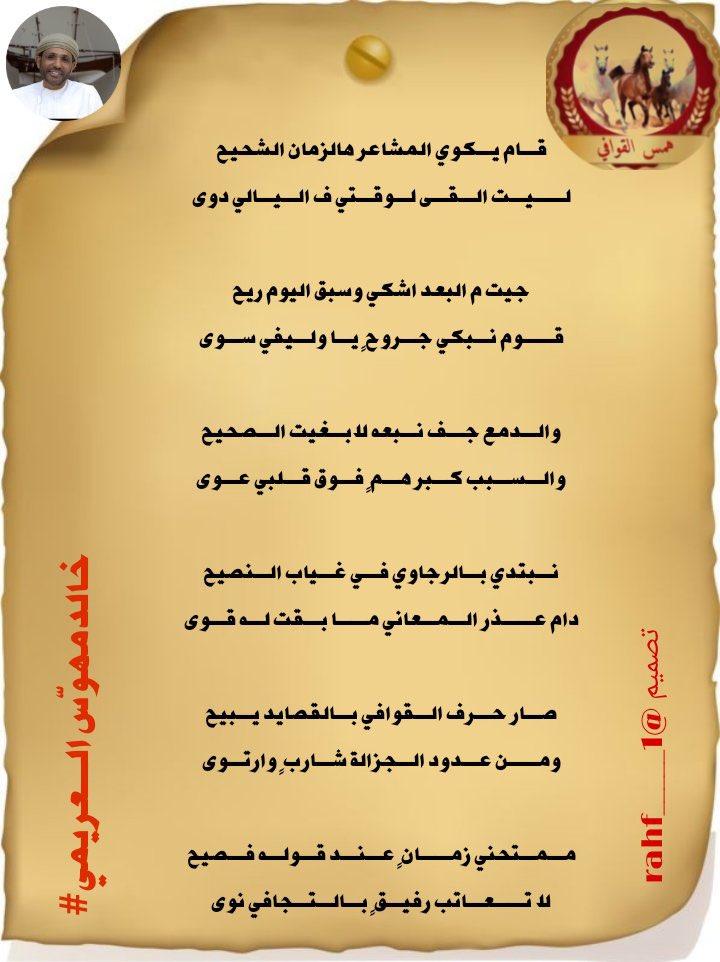 همس القوافي
قام يكوي المشاعر هالزمان الشحيح
ليت القى لوقتي ف الليالي دوى
جيت م البعد اشكي وسبق اليوم ريح
قوم نبكي جروحٍ يا وليفي سوى
والدمع جف نبعه لابغيت الصحيح
والسبب كبر همٍ فوق قلبي عوى
نبتدي بالرجاوي في غياب النصيح
دام عذر المعاني ما بقت له قوى
صار حرف القوافي بالقصايد يبيح
ومن عدود الجزالة شاربٍ وارتوى
ممتحني زمانٍ عند قوله فصيح
لا تعاتب رفيقٍ بالتجافي نوى
#خالدمهوّس العريمي
تصميم @rahf____1